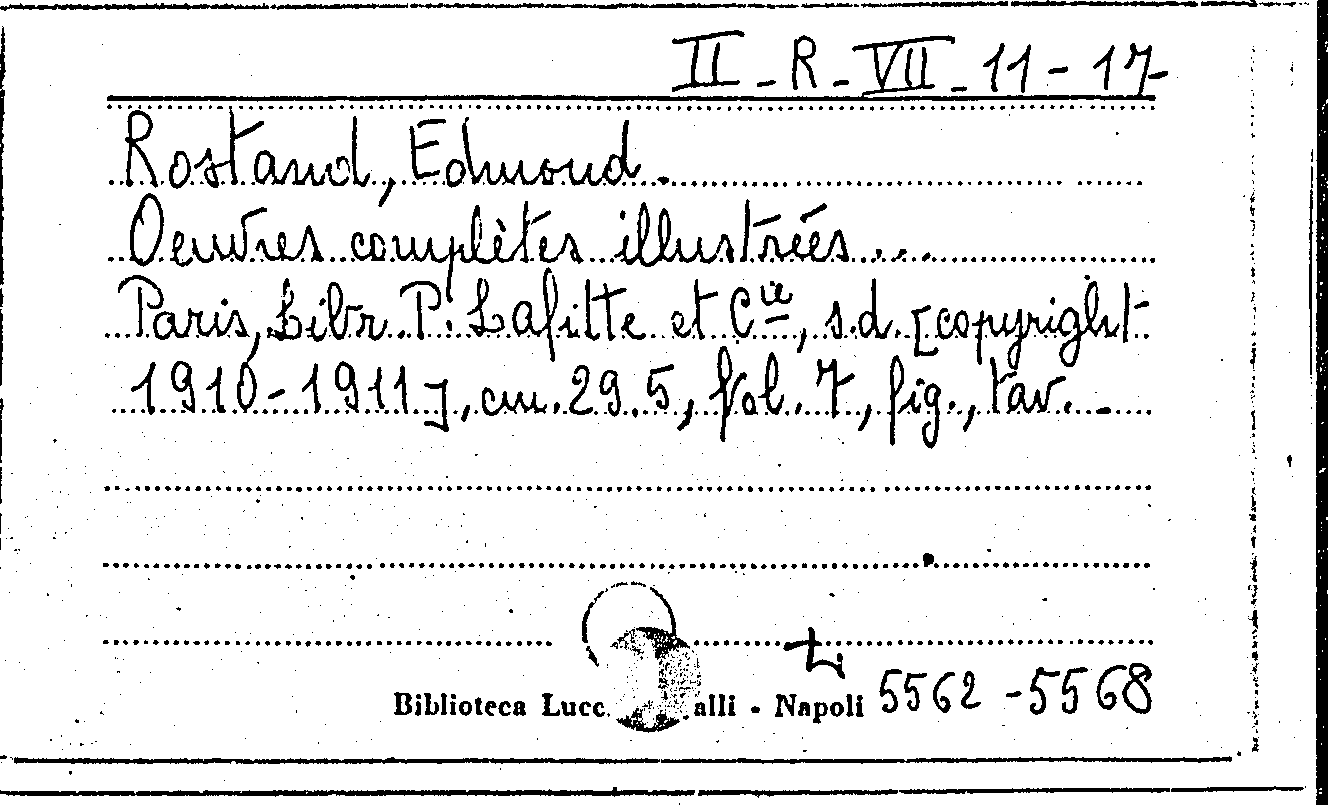 II - R - VII - 11 - 17
Rostand, Edmond.
Oeuvres complètes illustrées...
Paris, Libr. P. Lafitte et Cie, s.d. [copyright
1910-1911], cm. 29.5, Vol. 7, fig., tav.
Biblioteca Lucc alli - Napoli 5562 - 5568